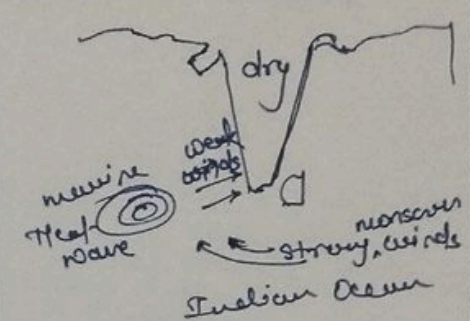 dry
weak
winds
marine
Heat
wave
monsoon
strong winds
Indian Ocean